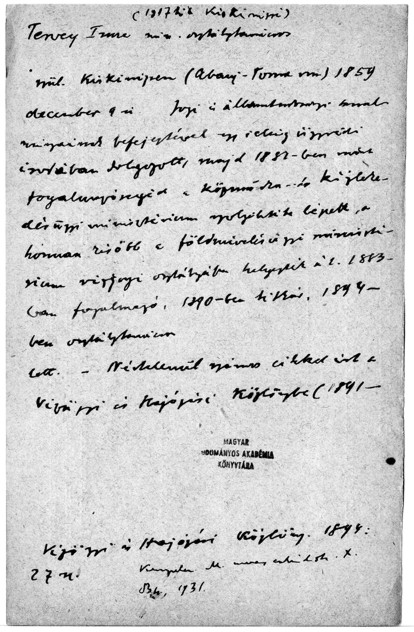 (1917-ik Kiskinizsi)
Tervey Imre min. osztálytanácsos
szül. Kiskinizsen (Abauj-Torna vm.) 1859
december 9-én Jogi és államtudományi tanul-
mányainak befejeztével egy ideig ügyvédi
irodában dolgozott, majd 1882-ben mint
fogalmazó a Közmunka- és Közleke-
désügyi minisztérium szolgálatába lépett, a
honnan később a földmivelésügyi miniszté-
rium vízjogi osztályába helyezték át. 1883-
ban fogalmazó, 1890-ben titkár, 1894-
ben osztálytanácsos
lett. - Névtelenül számos cikket írt a
Vízügyi és Hajózási Közlönybe (1891-
MAGYAR
TUDOMÁNYOS AKADÉMIA
KÖNYVTÁRA
Vízügyi és Hajózási Közlöny. 1894:
27 sz.
Kempelen M. nemes családok. X.
Bp., 1931.